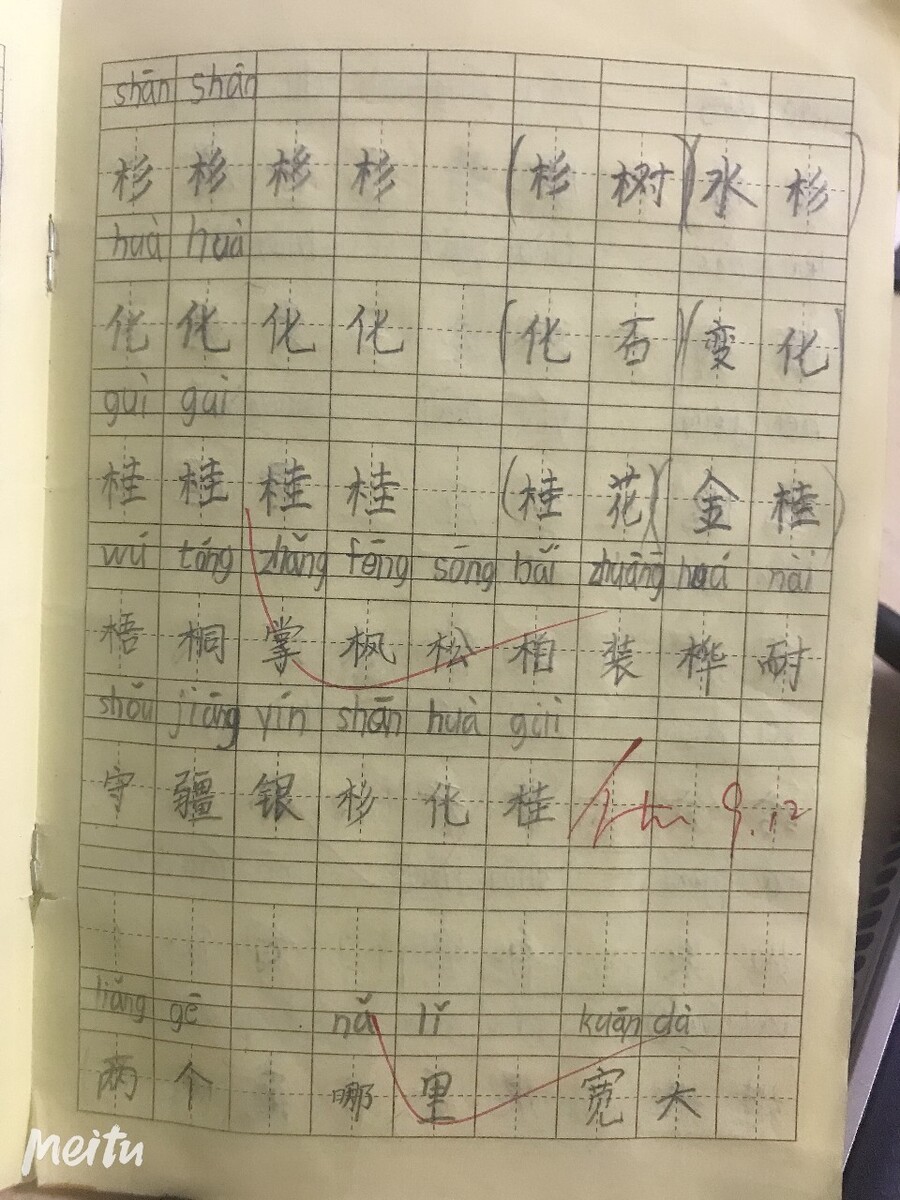 shān shān
杉 杉 杉 杉 (杉 树)(水 杉)
huà huà
化 化 化 化 (化 石)(变 化)
guì guì
桂 桂 桂 桂 (桂 花)(金 桂)
wú tóng zhǎng fēng sōng bǎi zhuāng huá nài
梧 桐 掌 枫 松 柏 装 桦 耐
shǒu jiāng yín shān huà guì
守 疆 银 杉 化 桂 9.12
liǎng gē nǎ lǐ kuān dà
两 个 哪 里 宽 大
Meitu